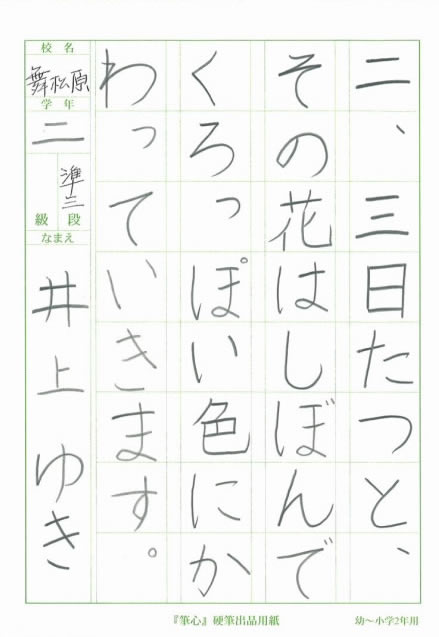 二、三日たつと、
その花はしぼんで
くろっぽい色にか
わっていきます。
校名
舞松原
学年
二
準三
級 段
なまえ
井上 ゆき
『筆心』硬筆出品用紙
幼～小学2年用